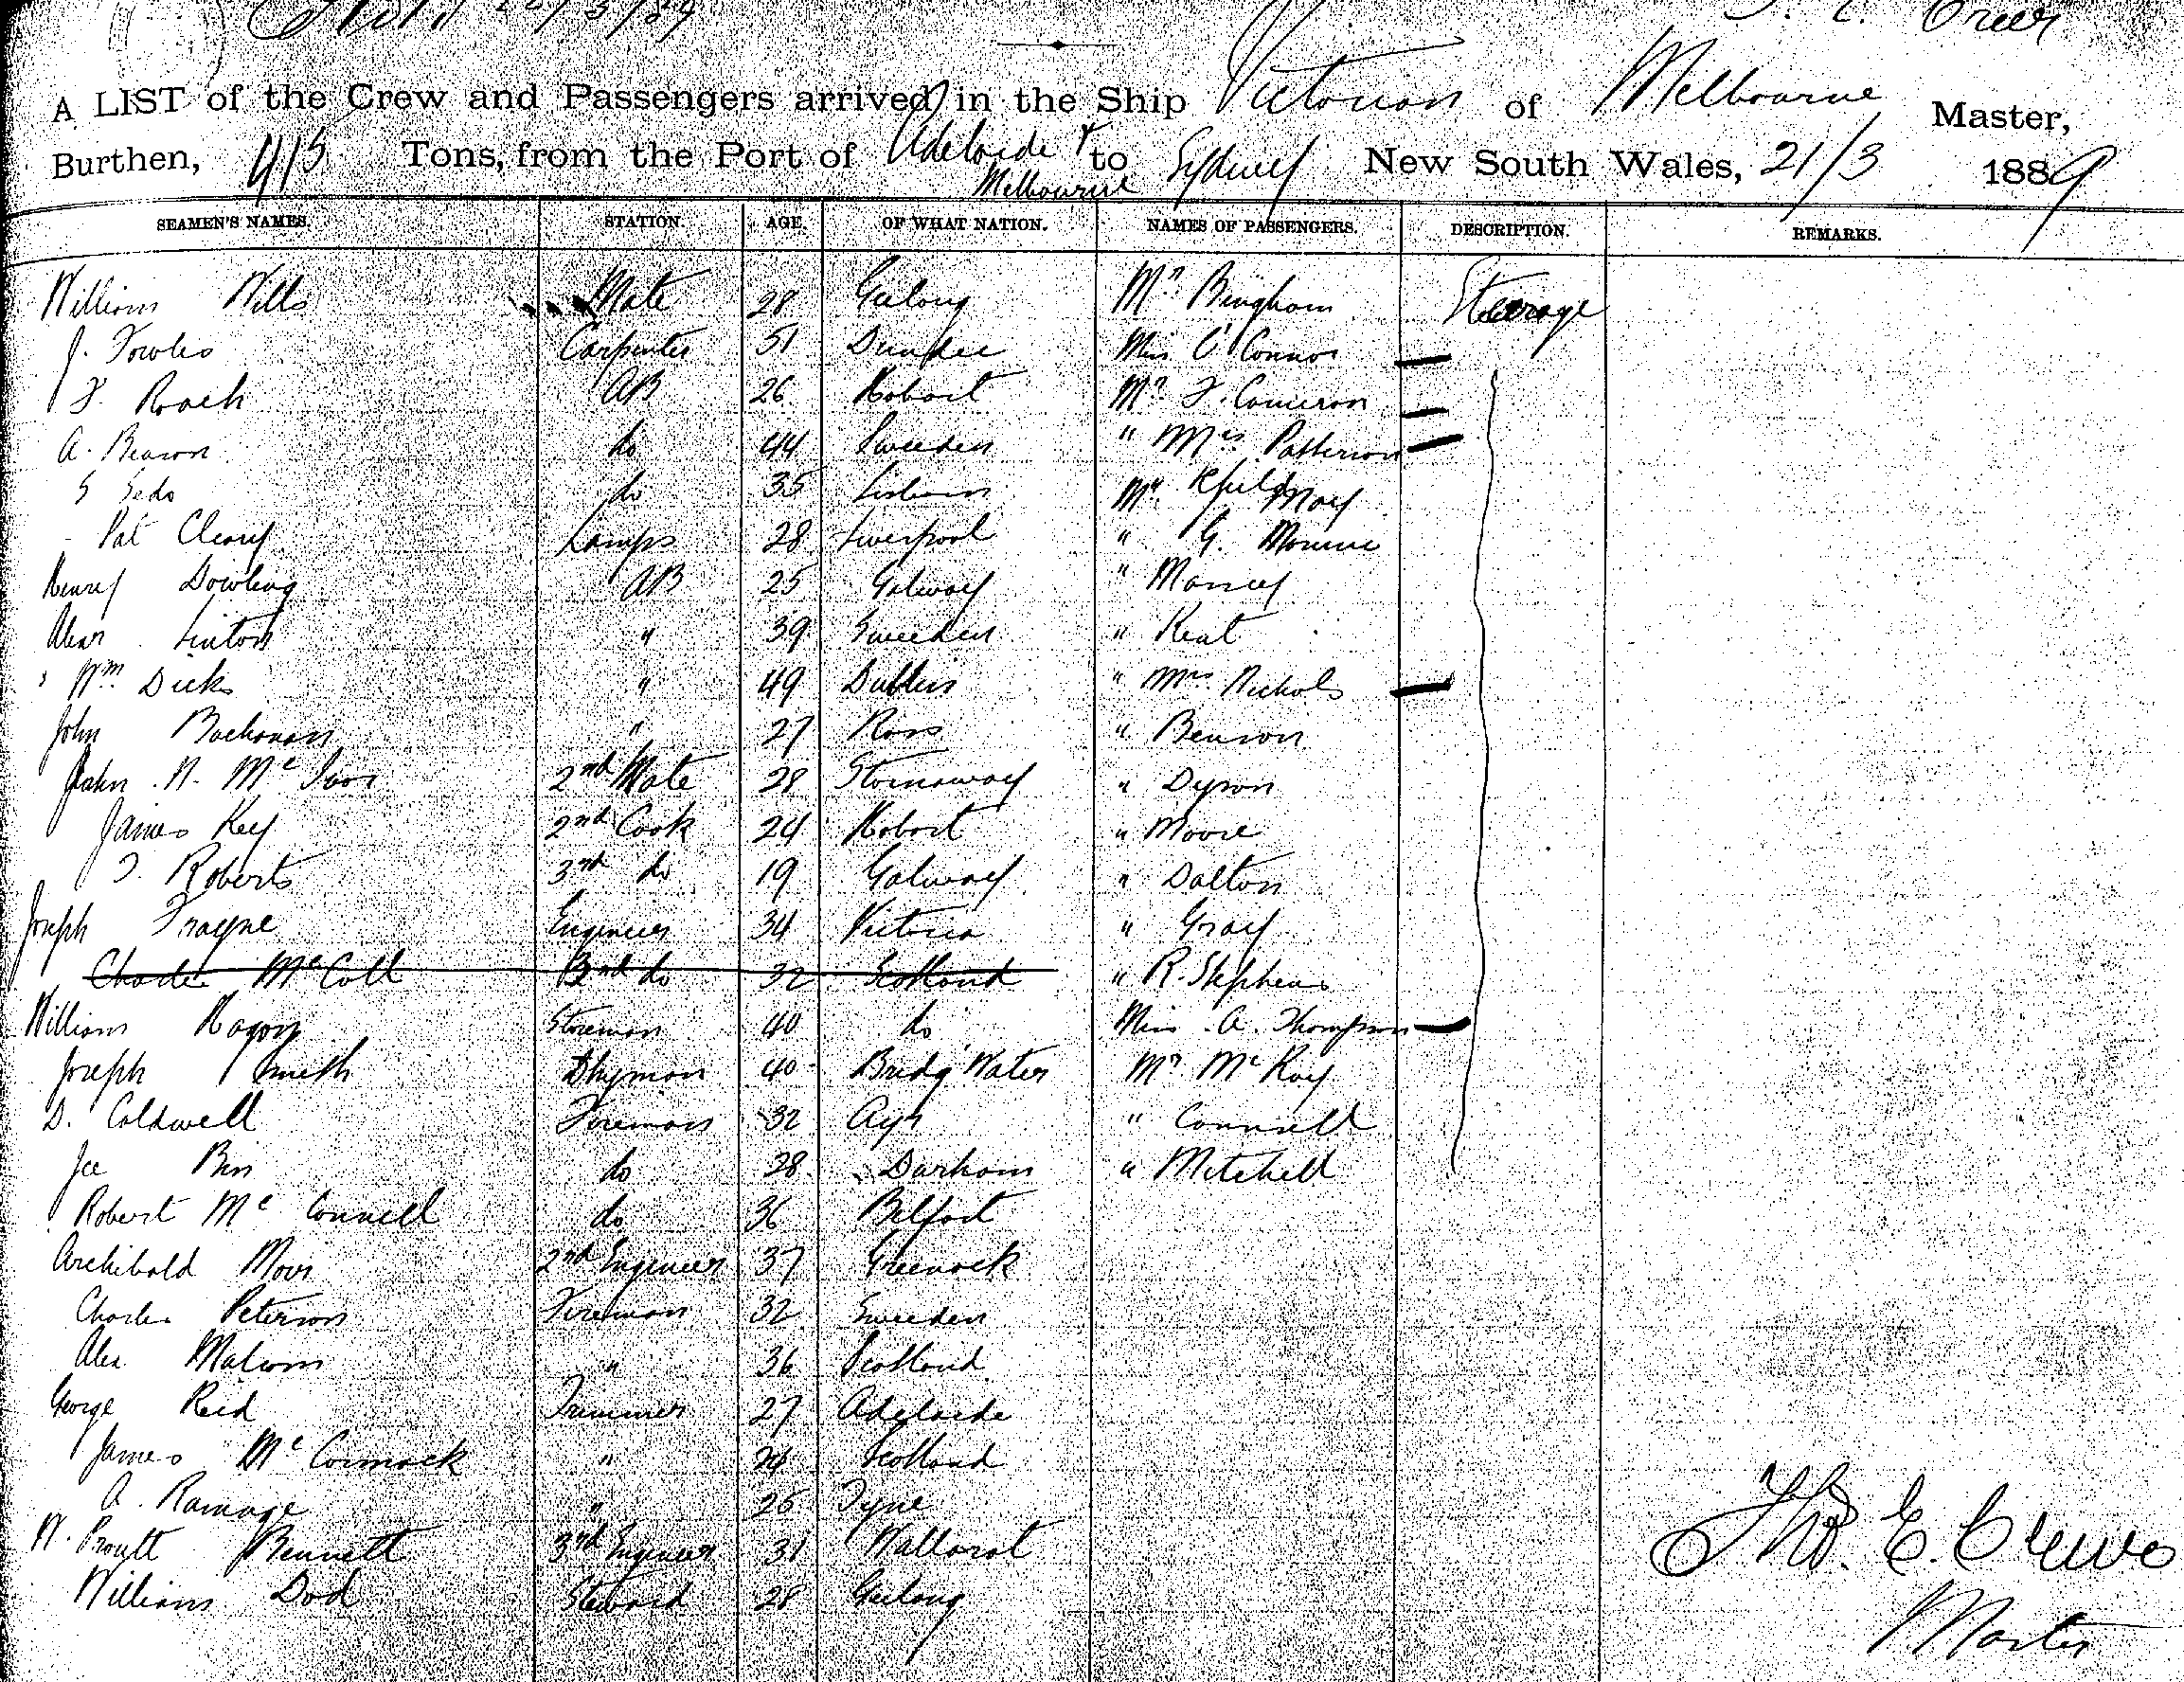 A LIST of the Crew and Passengers arrived in the Ship Victorian of Melbourne Master,
Burthen, 413 Tons, from the Port of Adelaide & Melbourne to Sydney New South Wales, 21/3 1889
SEAMEN'S NAMES. STATION. AGE. OF WHAT NATION. NAMES OF PASSENGERS. DESCRIPTION. REMARKS.
William Wills Mate 28 Geelong Mr Bingham Steerage
J. Fowles Carpenter 51 Dundee Miss O'Connor
F. Roach AB 26 Hobart Mr F. Cameron
A. Beason do 44 Sweeden " Mrs Patterson
S Seds do 35 Lisbon Mr May
Pat Cleary Lamps 28 Liverpool " G.
Henry Dowling AB 25 Galway "
Alexr Linton " 39 Sweeden " Keat
Wm Dicks " 49 Dublin " Mrs Nichols
John Buchanan " 27 Ross " Benson
John N. McIvor 2nd Mate 28 Stornaway " Dyson
James Key 2nd Cook 24 Hobart " Moore
T. Roberts 3rd do 19 Galway " Dalton
Joseph Frayne Engineer 34 Victoria " Gray
Charles McColl 2nd do 32 Scotland " R. Stephens
William Storeman 40 do Miss A. Thompson
Joseph Smith Dkyman 40 Bridg Water Mr McKay
D. Coldwell Fireman 32 Ayr " Connell
Bin do 28 Durham " Mitchell
Robert McConnell do 36 Belfast
Archibald Moir 2nd Engineer 37 Greenock
Charles Peterson Fireman 32 Sweeden
Alex Malcom " 36 Scotland
George Reid Trimmer 27 Adelaide
James McCormack " 24 Scotland
A. Ramage " 25 Tyne
W. Proutt Bennett 3rd Engineer 31 Wallarat
William Dod Steward 28 Geelong
Thos. E. Crews
Master